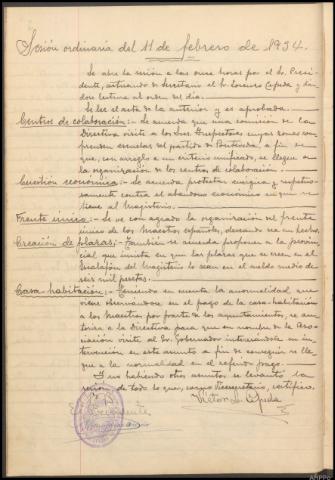 Sesión ordinaria del 11 de febrero de 1934.
Se abre la sesión a las once horas por el Sr. Presi-
dente, actuando de Secretario el Sr. Lorenzo Cepeda y dán-
dose lectura al orden del día.
Se lee el acta de la anterior y es aprobada.
Centros de colaboración:- Se acuerda que una comisión de la
Directiva visite a los Sres. Inspectores cuyas zonas com-
prenden escuelas del partido de a fin de
que, con arreglo a un criterio unificado, se llegue a
la organización de los centros de colaboración.
Cuestión económica:- Se acuerda protestar enérgica y respetuo-
samente contra el abandono económico en que se
tiene al Magisterio.
Frente único:- Se ve con agrado la organización del frente
único de los Maestros españoles, deseando sea un hecho.
Creación de plazas:- También se acuerda proponer a la provin-
cial que insista en que las plazas que se creen en el
Escalafón del Magisterio lo sean en el sueldo medio de
seis mil pesetas.
Casa-habitación:- Teniendo en cuenta la anormalidad que
viene observándose en el pago de la casa-habitación
a los Maestros por parte de los ayuntamientos, se au-
toriza a la Directiva para que en nombre de la Aso-
ciación visite al Sr. Gobernador interesándole su in-
tervención en este asunto a fin de conseguir se lle-
gue a la normalidad en el referido pago.
Y no habiendo otros asuntos se levantó la
sesión de todo lo que, como Vicesecretario, certifico.
El Presidente
Víctor L. Cepeda